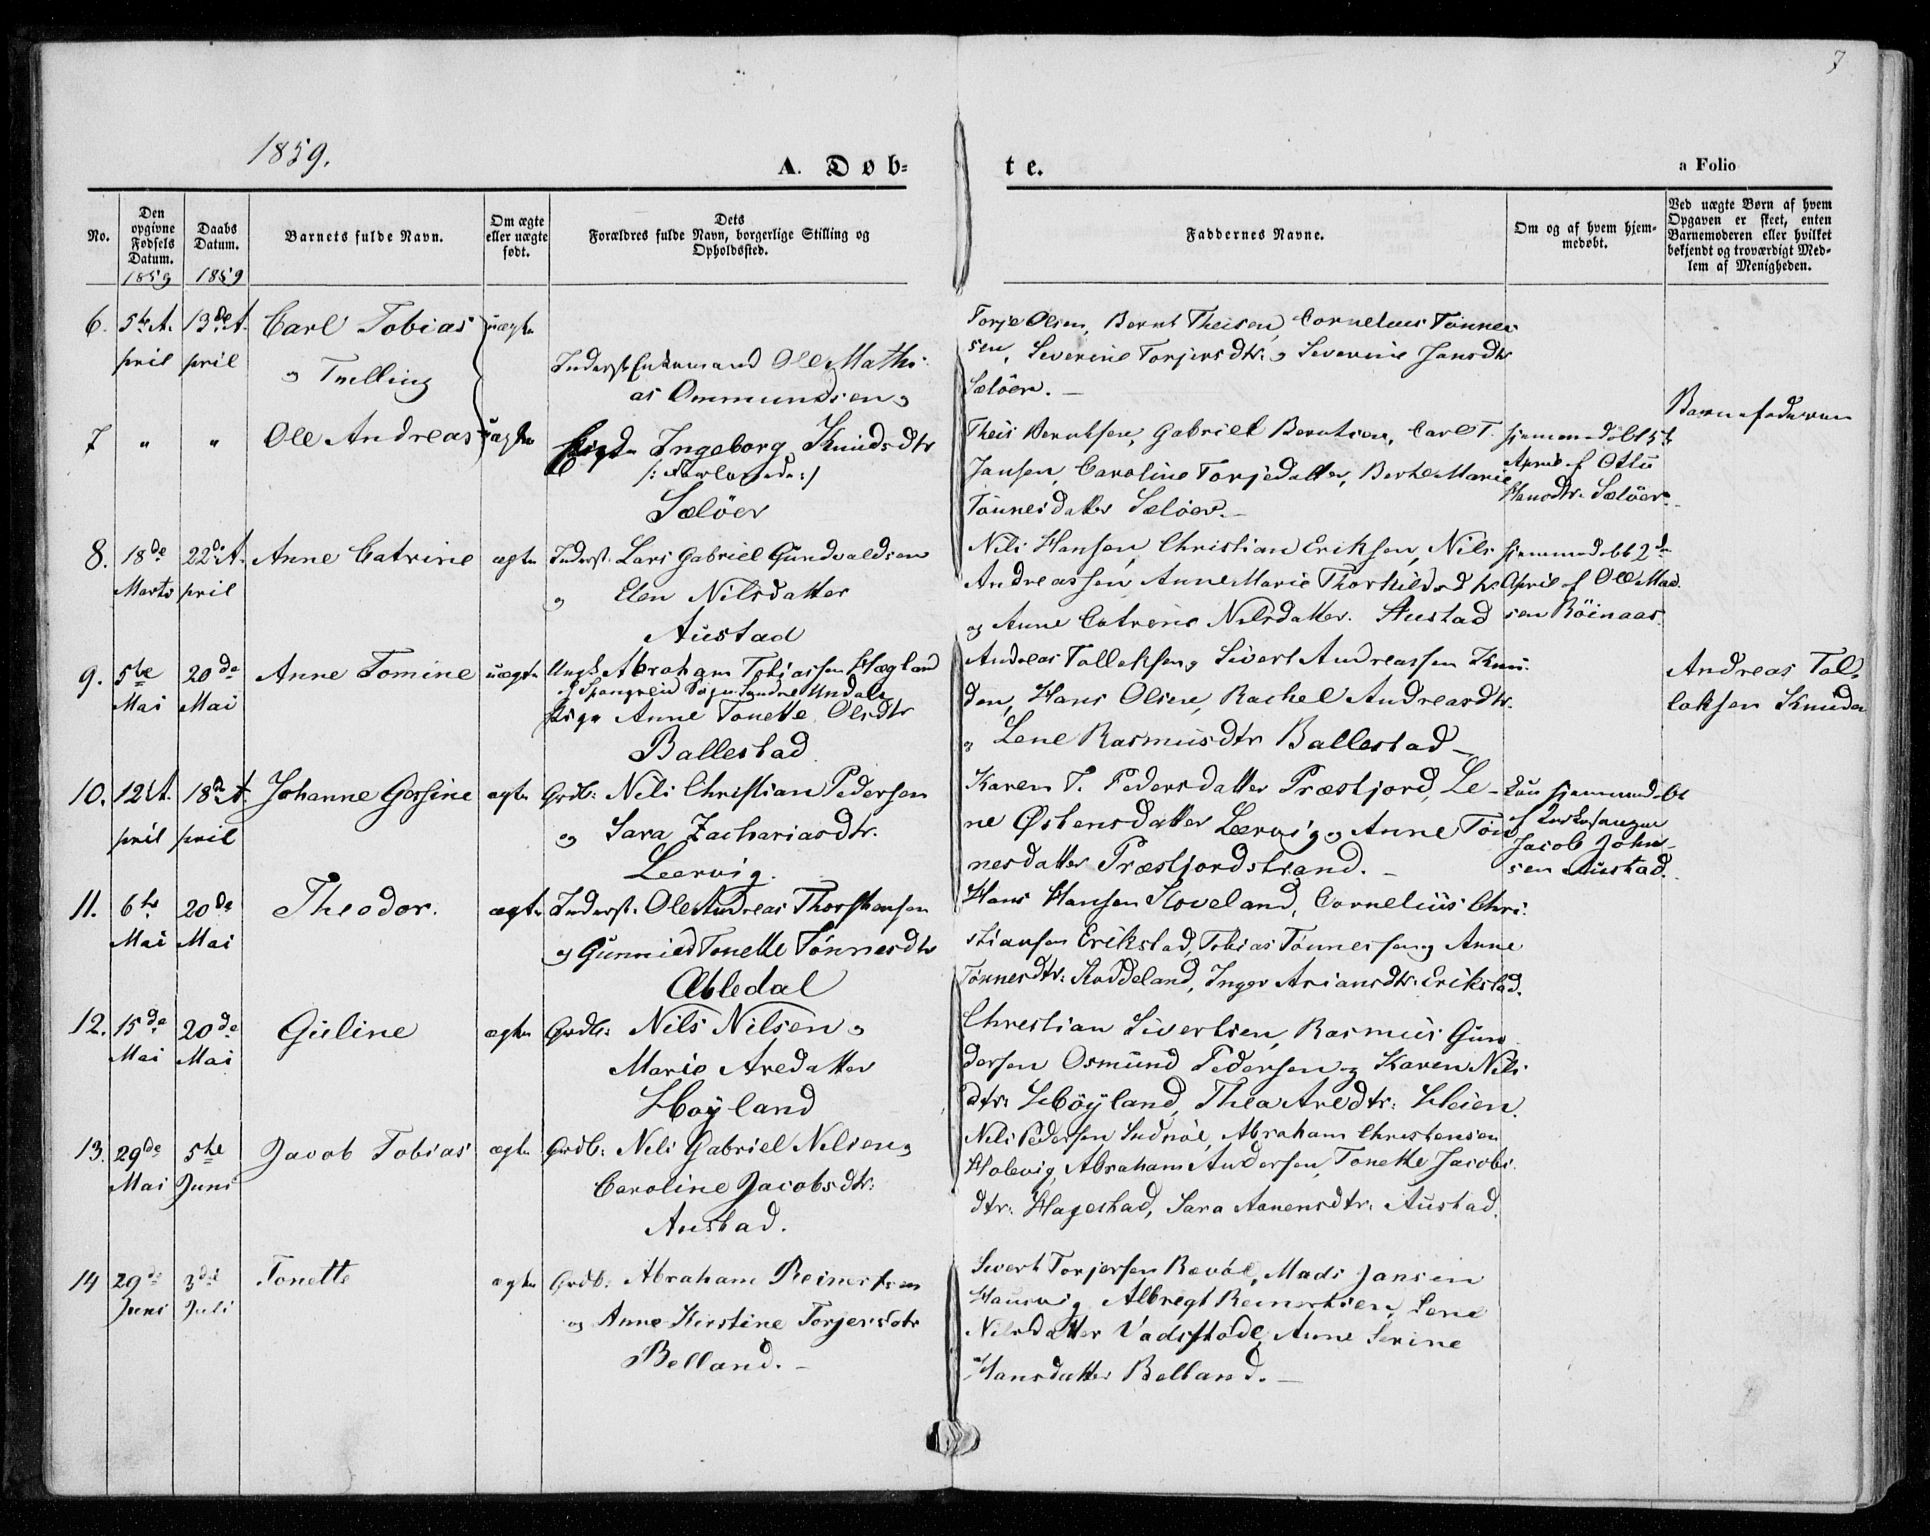 7
1859.
A. Døb-
te.
a Folio
No.
Den opgivne Fødsels Datum. 1859
Daabs Datum. 1859
Barnets fulde Navn.
Om ægte eller uægte født.
Dets
Forældres fulde Navn, borgerlige Stilling og
Opholdssted.
Faddernes Navne.
Om og af hvem hjem-
medøbt.
Ved uægte Børn af hvem
Opgaven er skeet, enten
Barnemoderen eller hvilket
bekjendt og troværdigt Med-
lem af Menigheden.
6. 5te A- 13de A- Carl Tobias uægte
pril pril
Tvelling
Inderst Enkemand Ole Mathi-
as Ommundsen og
Torje Olsen, Bernt Theisen, Cornelius Tønnes
sen, Severine Torjersdtr. og Severine Jansdtr
Seløer.
7 " " Ole Andreas uægte
Pige Ingeborg Knudsdtr
/: :/
Seløer
Theis Berntsen, Gabriel Berntsen, Carl T.
Jansen, Caroline Torjedatter, Berte Marie
Tønnesdatter Seløer.
hjemmedøbt 5te
April af
Hansdtr. Seløer
Barnefaderen
8. 18de 22de A- Anne Catrine ægte
Marts pril
Inderst. Lars Gabriel Gundvaldsen
og Elen Nilsdatter
Austad
Nils Hansen, Christian Eriksen, Nils
Andreassen, Anne Marie Thorkildsdtr.
og Anne Catrine Nilsdatter. Austad
hjemmedøbt 2de
April af Ole Mad-
sen Röinaas.
9. 5te 20de Anne Tomine uægte
Mai Mai
Ungk. Abraham Tobiassen Hægland
af Spangereid Sogn Søndre Undals
Pige Anne Tonette Olsdtr
Ballestad
Andreas Tollaksen, Sivert Andreassen Knu-
den, Hans Olsen, Rachel Andreasdtr.
og Lene Rasmusdtr Ballestad
Andreas Tol-
laksen Knuden
10. 12 A- 18de A- Johanne Gessine ægte
pril pril
Grdb: Nils Christian Pedersen
og Sara Zachariasdtr.
Leervig.
Karen T. Pedersdatter Præstjord, Le-
ne Østensdatter Leervig og Anne Tøn
nesdatter Præstjordstrand.
hjemmedøbt
af Kirkesanger
Jacob John-
sen Austad.
11. 6te 20de Theodor. ægte
Mai Mai
Inderst. Ole Andreas Thorstensen
og Gunnild Tonette Tønnesdtr
Æbledal
Hans Hansen Hoveland, Cornelius Chri-
stiansen Erikstad, Tobias Tønnessen og Anne
Tønnesdtr: Roddeland, Inger Ariansdtr: Erikstad.
12. 15de 20de Guline ægte
Mai Mai
Grdb: Nils Nilsen og
Marie Aredatter
Høyland
Christian Sivertsen, Rasmus Gun-
dersen Osmund Pedersen og Karen Nils
dtr: Høyland, Thea Aredtr: Heien.
13. 29de 5te Jacob Tobias ægte
Mai Juni
Grdb: Nils Gabriel Nilsen og
Caroline Jacobsdtr:
Austad.
Nils Pedersen, Abraham Christensen
Holevig, Abraham Andersen, Tonette Jacobs
dtr: Hagestad, Sara Aanensdtr: Austad.
14 29de 3die Tonette ægte
Juni Juli
Grdb: Abraham Reinertsen
og Anne Kirstine Torjersdtr
Belland.
Sivert Torjersen, Mads Jansen
Albregt Reinertsen, Lene
Nilsdatter, Anne Serine
Hansdatter Belland.